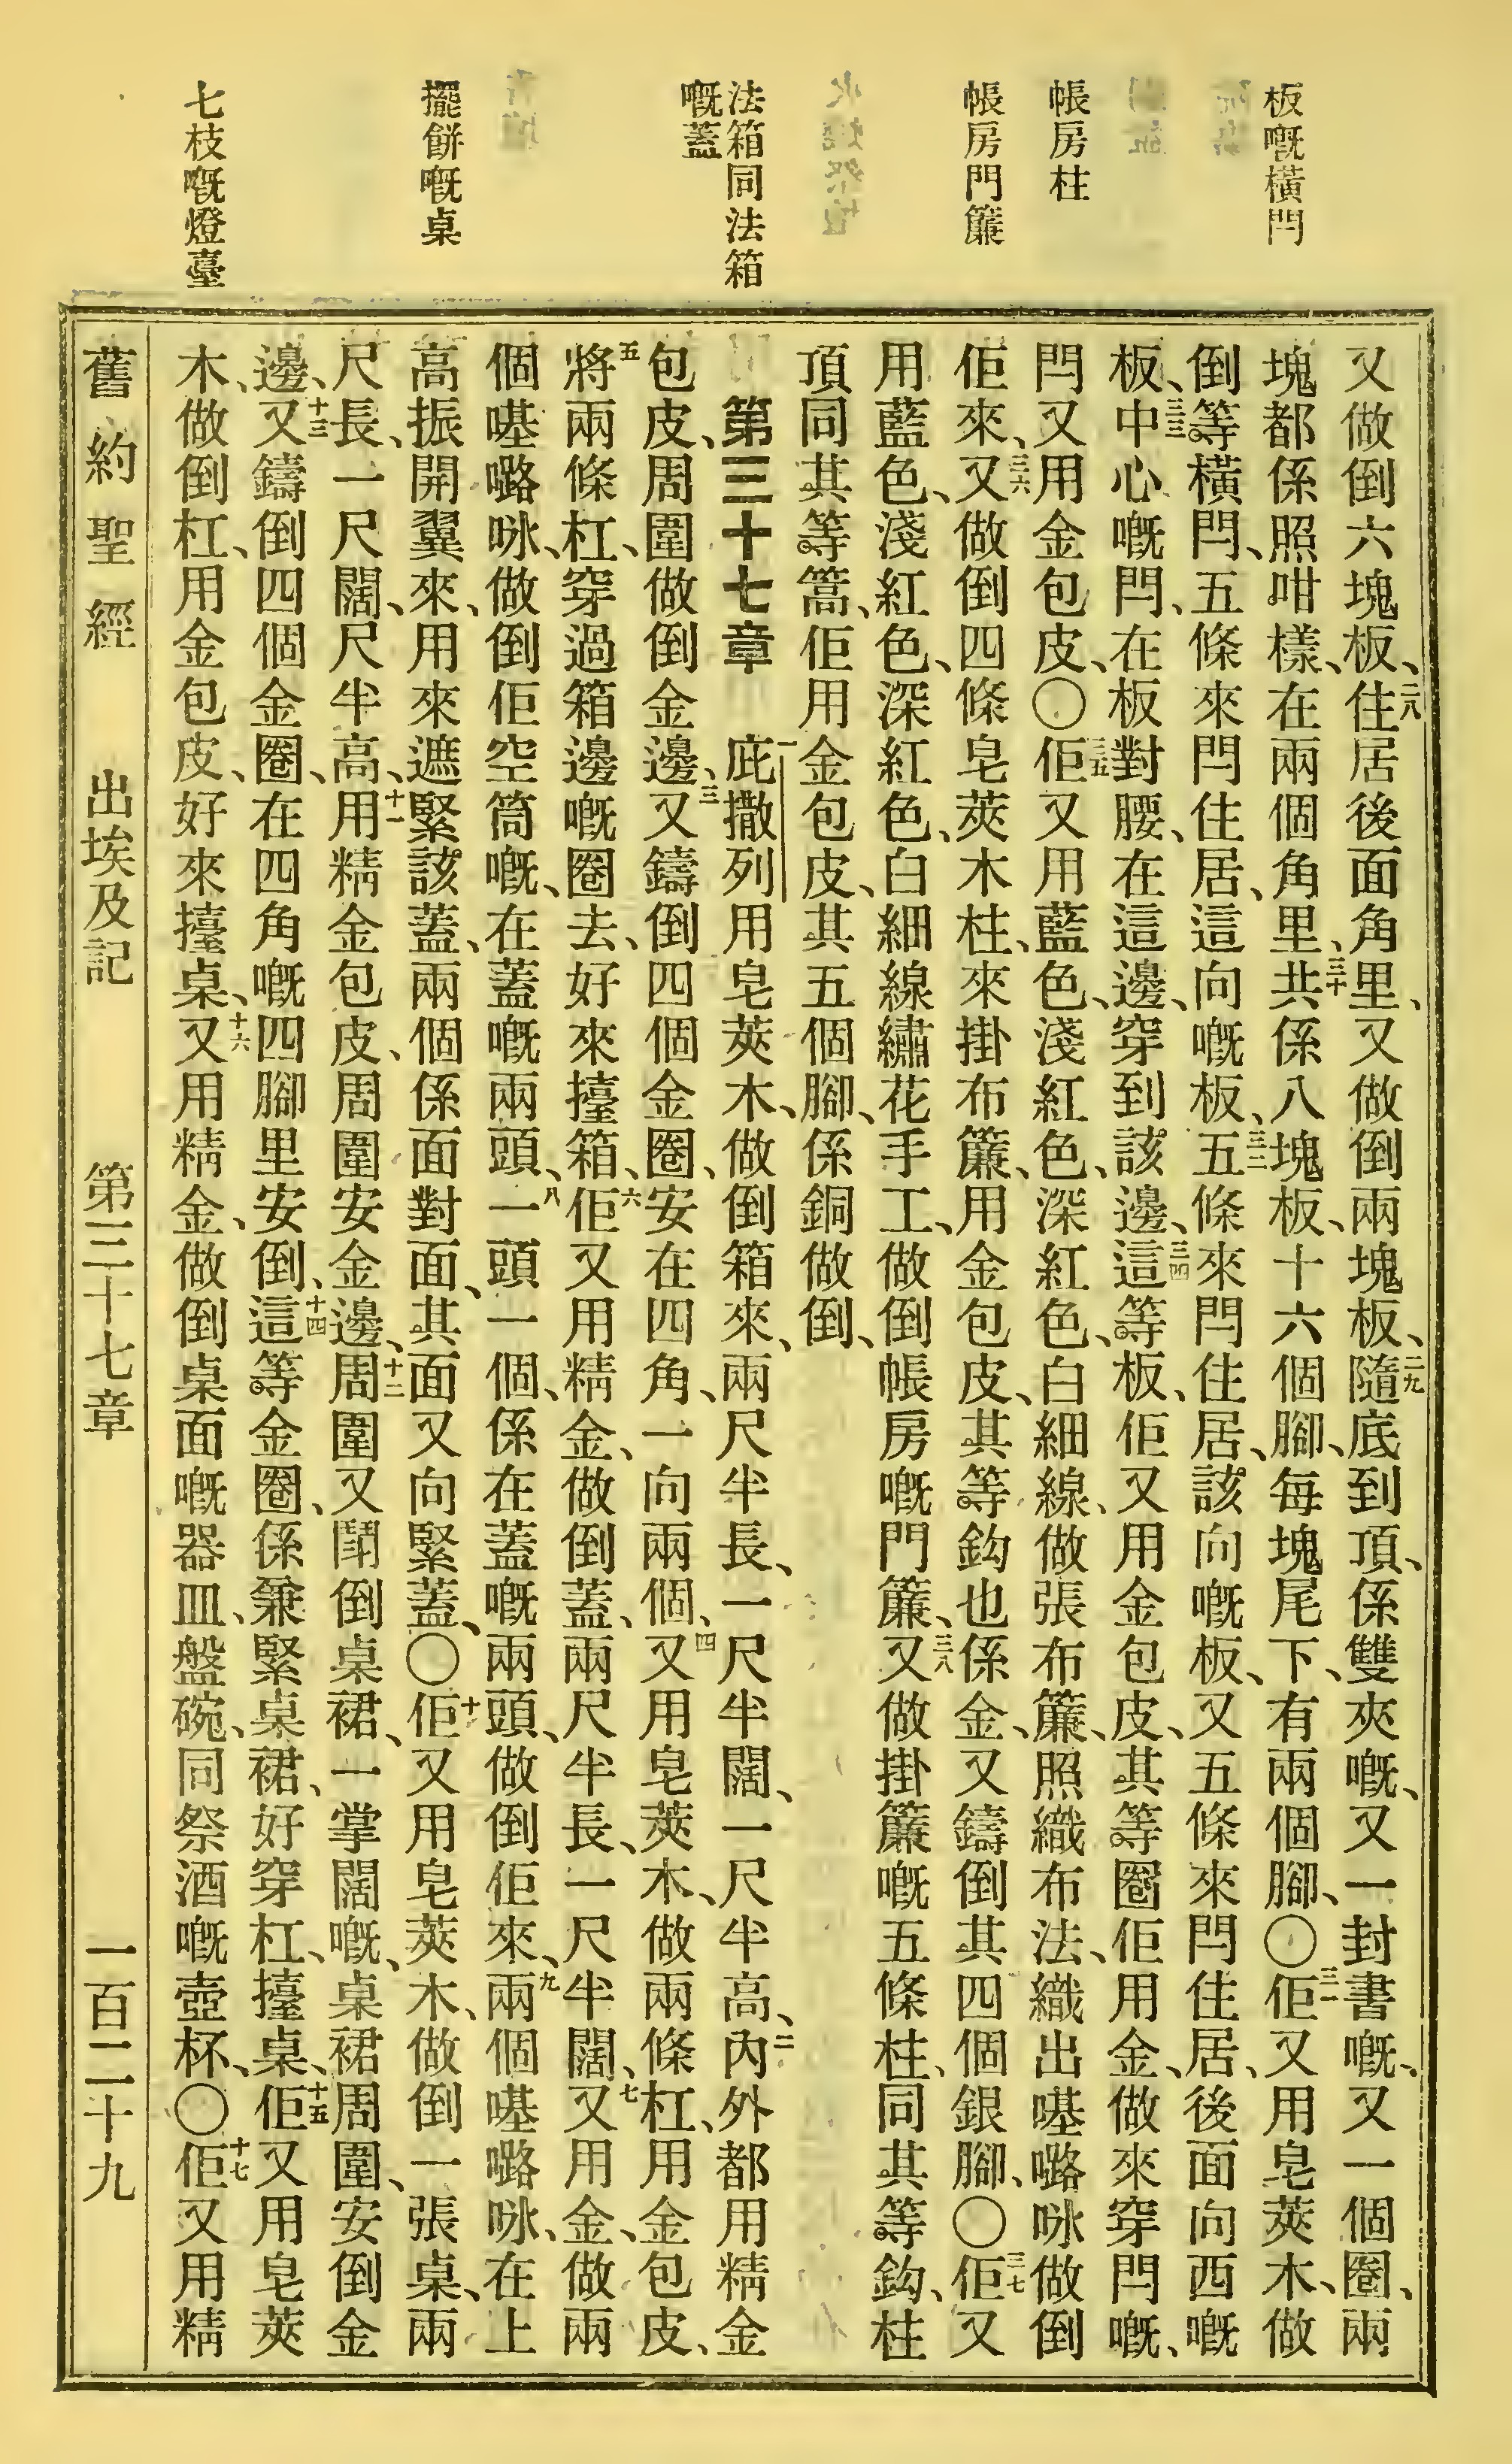 板嘅橫閂
帳房柱
帳房門簾
法箱同法箱
嘅蓋
擺餅嘅桌
七枝嘅燈臺
又做倒六塊板、二八住居後面角里、又做倒兩塊板、二九隨底到頂、係雙夾嘅、又一封書嘅、又一個圈、兩
塊都係照咁樣、在兩個角里、三十共係八塊板、十六個腳、每塊尾下、有兩個腳、〇三一佢又用皂莢木、做
倒等橫閂、五條來閂住居、這向嘅板、三二五條來閂住居、該向嘅板、又五條來閂住居、後面向西嘅
板、三三中心嘅閂、在板對腰、在這邊、穿到該邊、三四這等板、佢又用金包皮、其等圈佢用金、做來穿閂嘅、
閂又用金包皮、〇三五佢又用藍色、淺紅色、深紅色、白細線、做張布簾、照織布法、織出𠸉嚕㕽做倒
佢來、三六又做倒四條皂莢木柱、來掛布簾、用金包皮、其等鈎也係金、又鑄倒其四個銀腳、〇三七佢又
用藍色、淺紅色、深紅色、白細線繡花手工、做倒帳房嘅門簾、三八又做掛簾嘅五條柱、同其等鈎、柱
頂同其等篙、佢用金包皮、其五個腳、係銅做倒、
第三十七章 一庇撒列用皂莢木、做倒箱來、兩尺半長、一尺半闊、一尺半高、二內外都用精金
包皮、周圍做倒金邊、三又鑄倒四個金圈、安在四角、一向兩個、四又用皂莢木、做兩條杠、用金包皮、
五將兩條杠、穿過箱邊嘅圈去、好來擡箱、六佢又用精金、做倒蓋、兩尺半長、一尺半闊、七又用金、做兩
個𠸉嚕㕽、做倒佢空筒嘅、在蓋嘅兩頭、八一頭一個、係在蓋嘅兩頭、做倒佢來、九兩個𠸉嚕㕽、在上
高振開翼來、用來遮緊該蓋、兩個係面對面、其面又向緊蓋、〇十佢又用皂莢木、做倒一張桌、兩
尺長、一尺闊、尺半高、十一用精金包皮、周圍安金邊、十二周圍又鬪倒桌裙、一掌闊嘅、桌裙周圍、安倒金
邊、十三又鑄倒四個金圈、在四角嘅四腳里安倒、十四這等金圈、係兼緊桌裙、好穿杠、擡桌、十五佢又用皂莢
木、做倒杠、用金包皮、好來擡桌、十六又用精金、做倒桌面嘅器皿、盤碗、同祭酒嘅壺杯、〇十七佢又用精
舊約聖經 出埃及記 第三十七章 一百二十九